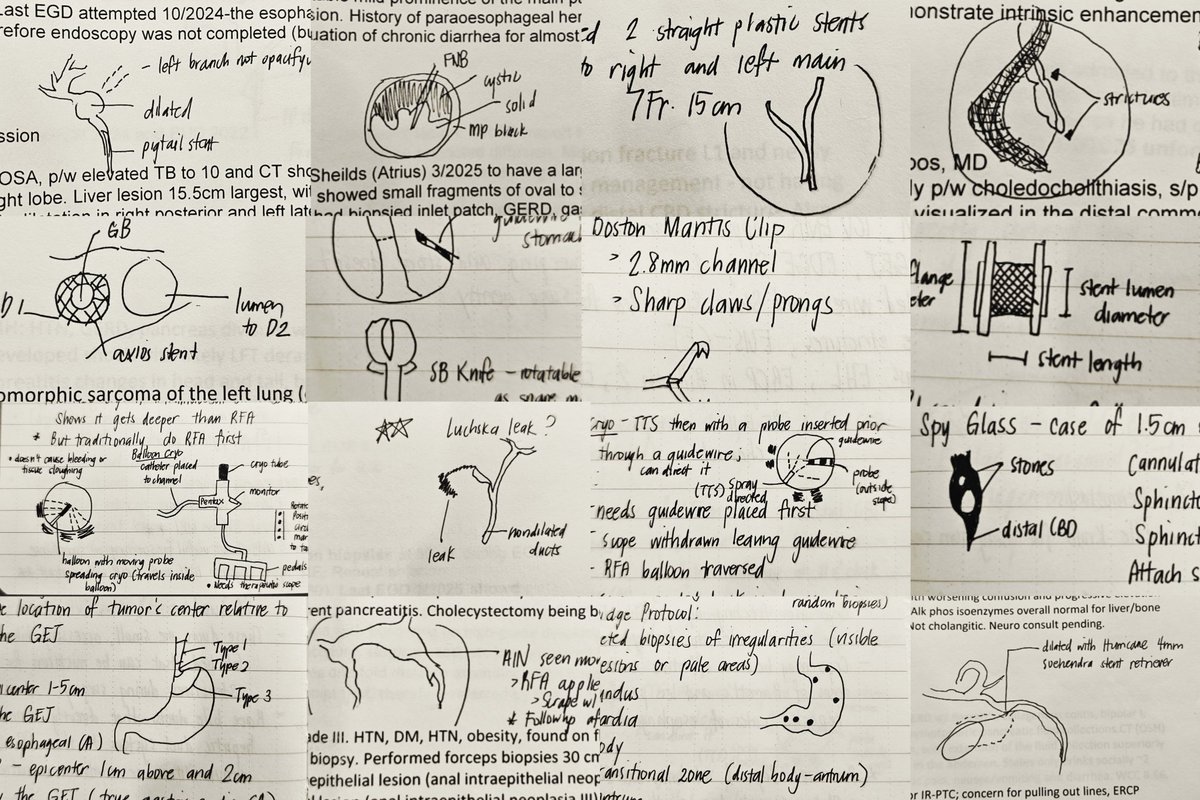 Last EGD attempted 10/2024-the esopha
refore endoscopy was not completed (bu
left branch not opacify
dilated
pigtail stent
ssion
OSA, p/w elevated TB to 10 and CT sho
ght lobe. Liver lesion 15.5cm largest, wit
sion. History of paraoesophageal her
uation of chronic diarrhea for almost
FNB
cystic
solid
mp black
Sheilds (Atrius) 3/2025 to have a lar
showed small fragments of oval to s
had biopsied inlet patch, GERD, ga
d 2 straight plastic stents
to right and left main
7Fr. 15cm
monstrate intrinsic enhancement
strictures
oos, MD
ly p/w choledocholithiasis, s/p
visualized in the distal comm
GB
D1
lumen
to D2
axios stent
omorphic sarcoma of the left lung (
stomach
SB Knife - rotatable
as snare m
Boston Mantis Clip
> 2.8mm channel
> Sharp claws/prongs
flange
eter
stent lumen
diameter
stent length
Shows it gets deeper than RFA
* But traditionally do RFA first
• doesn't cause bleeding or
tissue sloughing
Balloon cryo
catheter placed
to channel
cryo tube
Pentax
monitor
pedals
• Needs therapeutic scope
balloon with moving probe
spreading cryo (travels inside
balloon)
Luchska leak?
leak
nondilated
ducts
Cryo - TTS then with a probe inserted prior
through a guidewire;
can direct it
(TTS) spray
directed
guidewire
probe
(outside
scope)
-needs guidewire placed first
scope withdrawn leaving guidewire
- RFA balloon traversed
Spy Glass - case of 1.5cm s
stones
distal CBD
Cannulat
Sphinct
Sphinct
Attach s
e location of tumor's center relative to
he GEJ
Type 1
Type 2
Type 3
icenter 1-5cm
he GEJ
esophageal (A)
- epicenter 1cm above and 2cm
rent pancreatitis. Cholecystectomy being b
AIN seen mo
> RFA applie
> Scrape wi
* Followup a
ade III. HTN, DM, HTN, obesity, found on f
biopsy. Performed forceps biopsies 30 cm
epithelial lesion (anal intraepithelial neop
random biopsies)
idge Protocol:
cted biopsies of irregularities (visible
esions or pale areas)
undus
ardia
ody
ansitional zone (distal body-antrum)
ith worsening confusion and progressive
Alk phos isoenzymes overall normal for liver/bone
Not cholangitic. Neuro consult pending.
dilated with Hurricane 4mm
Soehendra stent retriever
or IR-PTC; concern for pulling out lines, ERCP